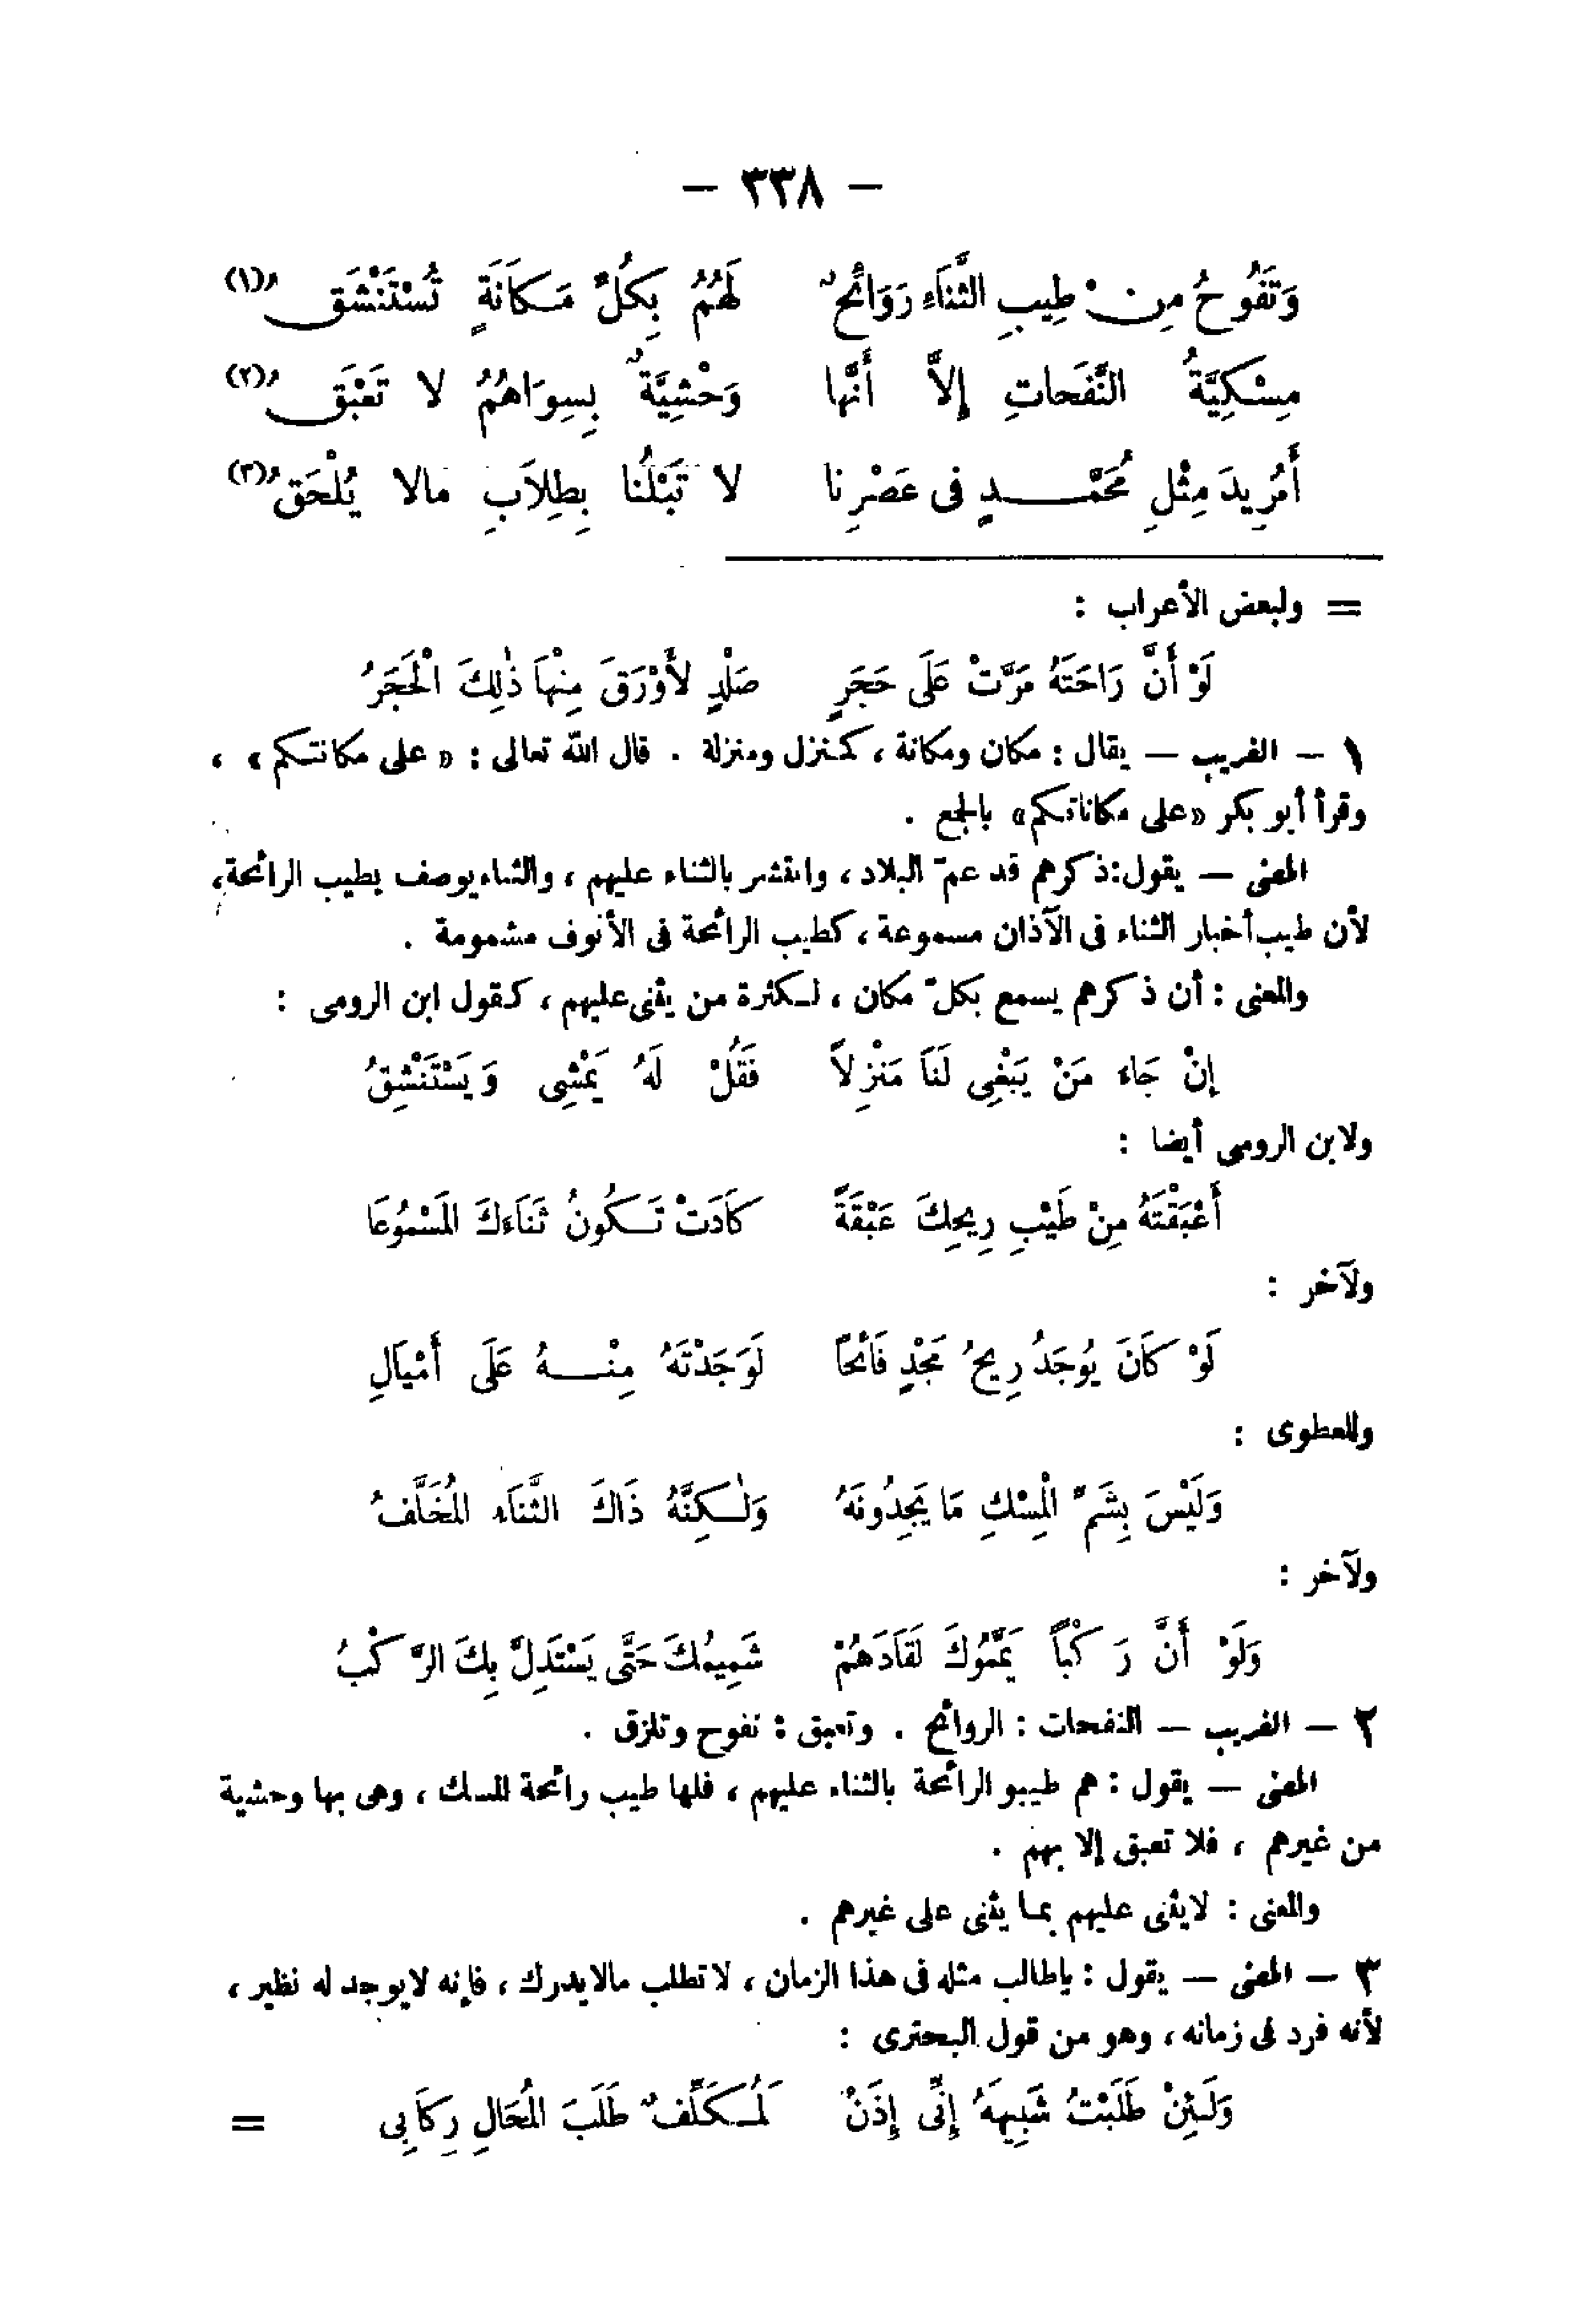 — ٣٣٨ —
وَتَفُوحُ مِنْ طِيبِ الثَّنَاءِ رَوَائِحٌ لَهُمُ بِكُلِّ مَكَانَةٍ تُسْتَنْشَقُ (١)
مِسْكِيَّةُ النَّفَحاتِ إِلاَّ أَنَّها وَحْشِيَّةٌ بِسِوَاهُمُ لا تَعْبَقُ (٢)
أَمُرِيدَ مِثْلِ مُحَمَّدٍ فى عَصْرِنا لا تَبْلُنَا بِطِلاَبِ مالا يُلْحَقُ (٣)
= ولبعض الأعراب :
لَوْ أَنَّ رَاحَتَهُ مَرَّتْ عَلَى حَجَرٍ صَلْدٍ لأَوْرَقَ مِنْهَا ذٰلِكَ الْحَجَرُ
١ — الغريب — يقال : مكان ومكانة ، كمنزل ومنزلة . قال الله تعالى : « على مكانتكم » ،
وقرأ أبو بكر «على مكاناتكم» بالجمع .
المعنى — يقول : ذكرهم قد عمّ البلاد ، وانتشر بالثناء عليهم ، والثناء يوصف بطيب الرائحة ،
لأن طيب أخبار الثناء فى الآذان مسموعة ، كطيب الرائحة فى الأنوف مشمومة .
والمعنى : أن ذكرهم يسمع بكلّ مكان ، لكثرة من يثنى عليهم ، كقول ابن الرومى :
إِنْ جَاءَ مَنْ يَبْغِى لَنَا مَنْزِلاً فَقُلْ لَهُ يَمْشِى وَيَسْتَنْشِقُ
ولابن الرومى أيضا :
أَعْبَقْتَهُ مِنْ طَيْبِ رِيحِكَ عَبْقَةً كَادَتْ تَكُونُ ثَنَاءَكَ المَسْمُوعَا
ولآخر :
لَوْ كَانَ يُوجَدُ رِيحُ مَجْدٍ فَائحًا لَوَجَدْتَهُ مِنْهُ عَلَى أَمْيَالِ
وللعطوى :
وَلَيْسَ بِشَمِّ الْمِسْكِ مَا يَجِدُونَهُ وَلٰكِنَّهُ ذَاكَ الثَّنَاءُ المُخَلَّفُ
ولآخر :
وَلَوْ أَنَّ رَكْبًا يَمَّمُوكَ لَقَادَهُمْ شَمِيمُكَ حَتَّى يَسْتَدِلَّ بِكَ الرَّكْبُ
٢ — الغريب — النفحات : الروائح . وتعبق : تفوح وتلزق .
المعنى — يقول : هم طيبو الرائحة بالثناء عليهم ، فلها طيب رائحة المسك ، وهى بها وحشية
من غيرهم ، فلا تعبق إلا بهم .
والمعنى : لا يثنى عليهم بما يثنى على غيرهم .
٣ — المعنى — يقول : ياطالب مثله فى هذا الزمان ، لا تطلب مالا يدرك ، فإنه لا يوجد له نظير ،
لأنه فرد فى زمانه ، وهو من قول البحترى :
وَلَئِنْ طَلَبْتُ شَبِيهَهُ إِنِّى إِذَنْ لَمُكَلِّفٌ طَلَبَ المُحَالِ رِكَابِى =